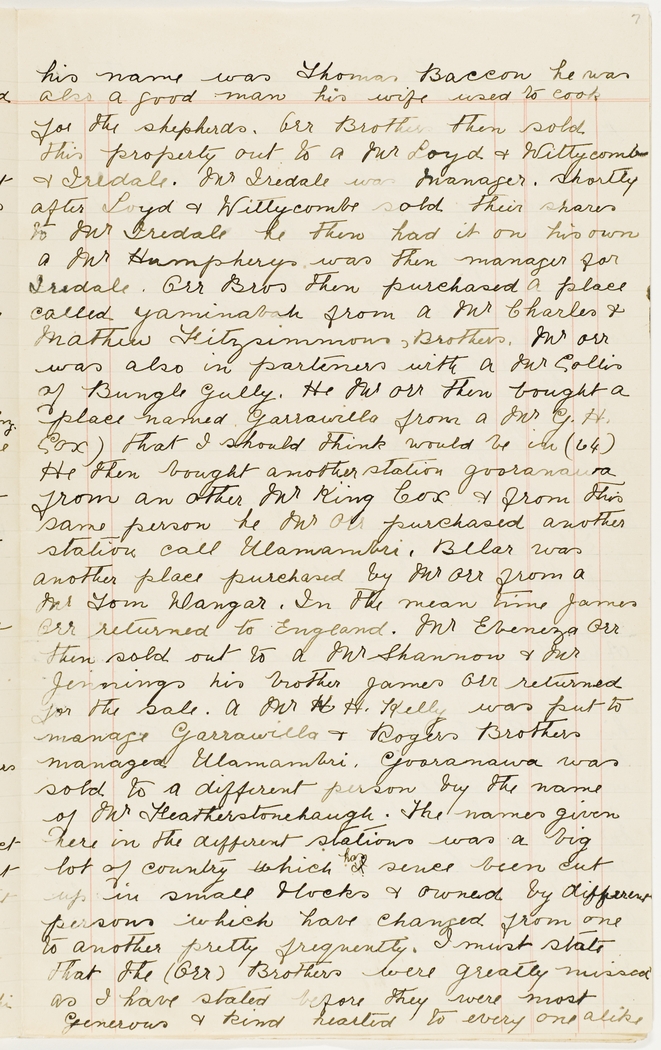 7
his name was Thomas Baccon he was
also a good man his wife used to cook
for the shepherds. Orr Brother then sold
this property out to a Mr Loyd & Wittycomb
& Iredale. Mr Iredale was manager. shortly
after Loyd & Wittycombe sold their shares
to Mr Iredale he then had it on his own
a Mr Humpherys was then manager for
Iredale. Orr Bros then purchased a place
called yaminabah from a Mr Charles &
Mathew Fitzsimmons, Brothers. Mr orr
was also in parteners with a Mr Collis
of Bungle Gully. He Mr orr then bought a
place named Garrawilla from a Mr G. H.
Cox) that I should think would be in (64)
He then bought another station gooranawa
from an other Mr King Cox & from this
same person he Mr Orr purchased another
station call Ulamambri. Bllar was
another place purchased by Mr Orr from a
Mr Tom Dangar. In the mean time James
Orr returned to England. Mr Ebeneza Orr
then sold out to a Mr Shannon & Mr
Jennings his brother James Orr returned
for the sale. A Mr H. Kelly was put to
manage Garrawilla & Rogers Brothers
managed Ulamambri. Gooranawa was
sold to a different person by the name
of Mr Featherstonehaugh. The names given
here in the different stations was a big
lot of country which has sence been cut
up in small blocks & owned by different
persons which have changed from one
to another pretty frequently. I must state
that the (Orr) Brothers were greatly missed
as I have stated before they were most
Generous & kind hearted to every one alike